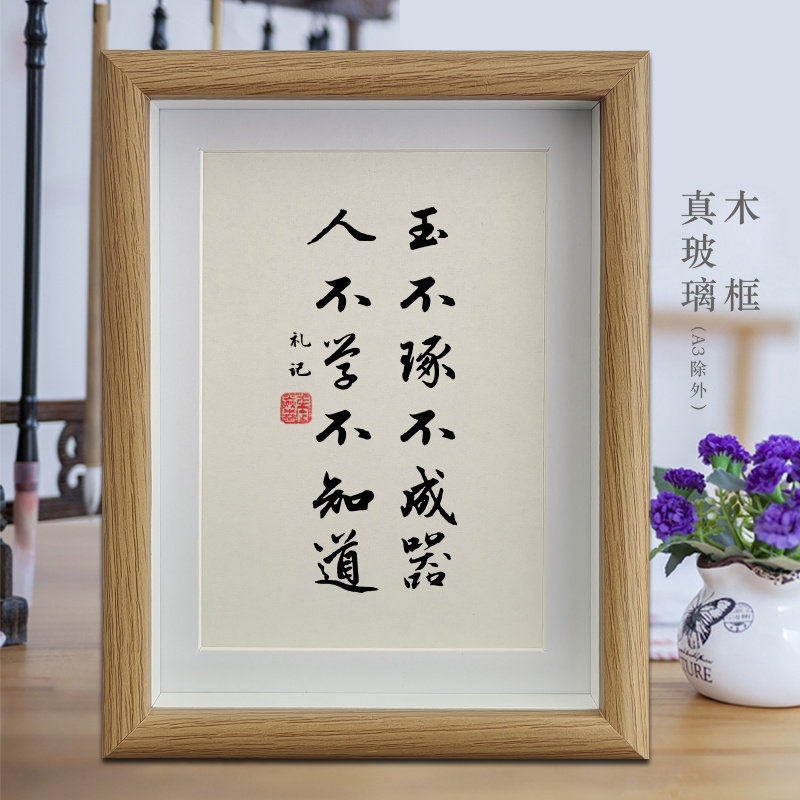 玉不琢不成器
人不学不知道
礼记
木框
真玻璃
(A3除外)
TURE